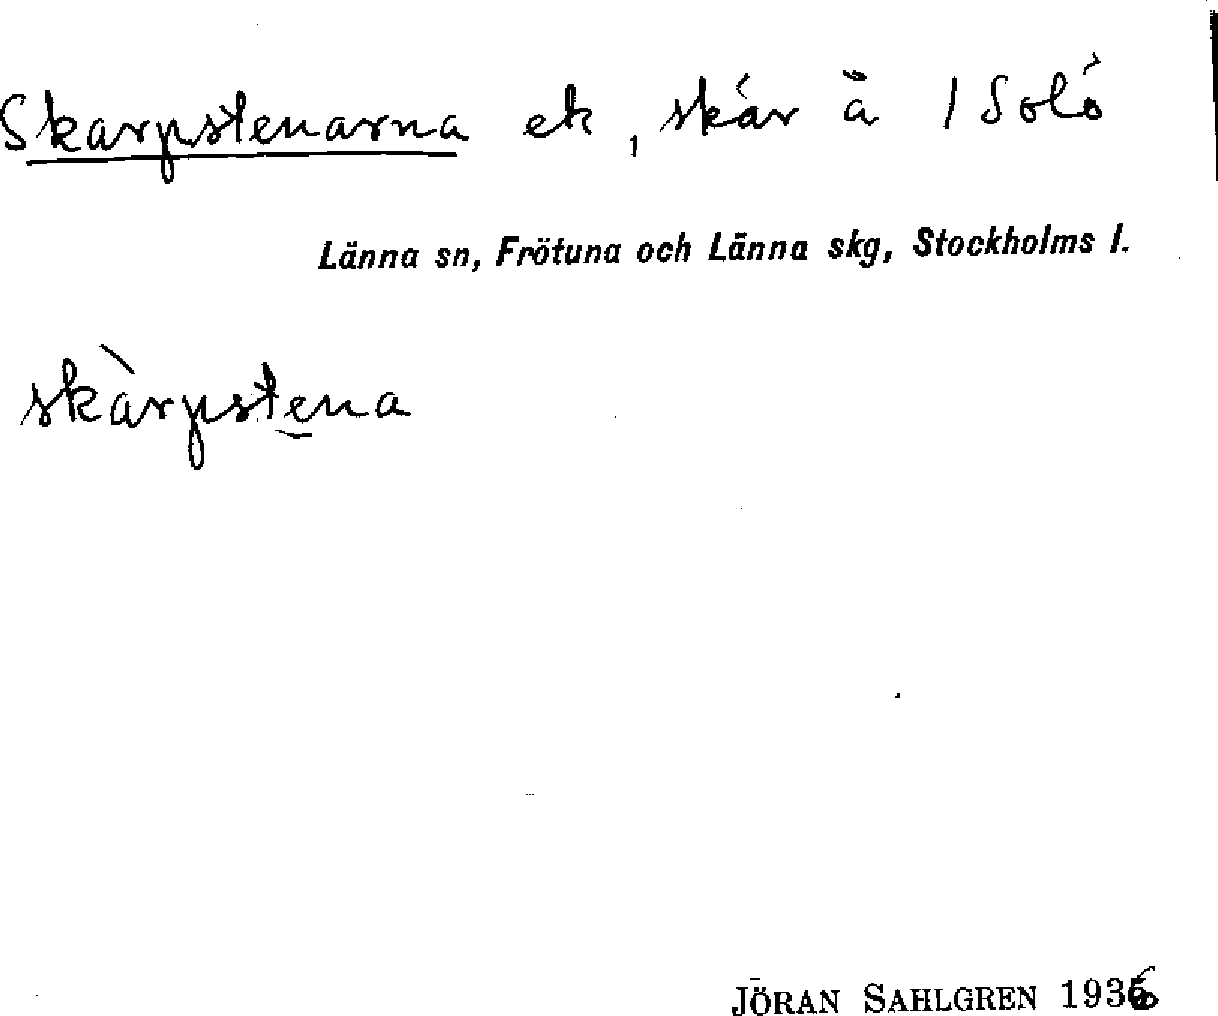 Skarpstenarna ek, skär å / Solö
Länna sn, Frötuna och Länna skg, Stockholms l.
skàrpstena
JÖRAN SAHLGREN 1936